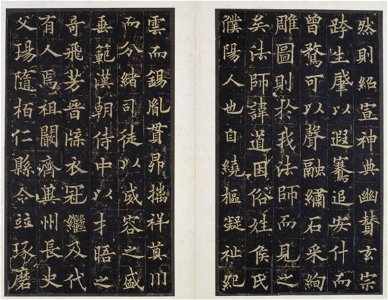 然則紹宣神典幽贊玄宗
跨生肇以遐騫追安什而
曾騖可以聲融繡石采絢
雕圖則於我法師而見之
矣法師諱道因俗姓侯氏
濮陽人也自繞樞凝祉紀
雲而錫胤貫昴摛祥奠川
而分緒司徒以威容之盛
垂範漢朝侍中以才晤之
奇飛芳晉牒衣冠繼及代
有人焉祖闡齊冀州長史
父瑒隨柏仁縣令並琢磨